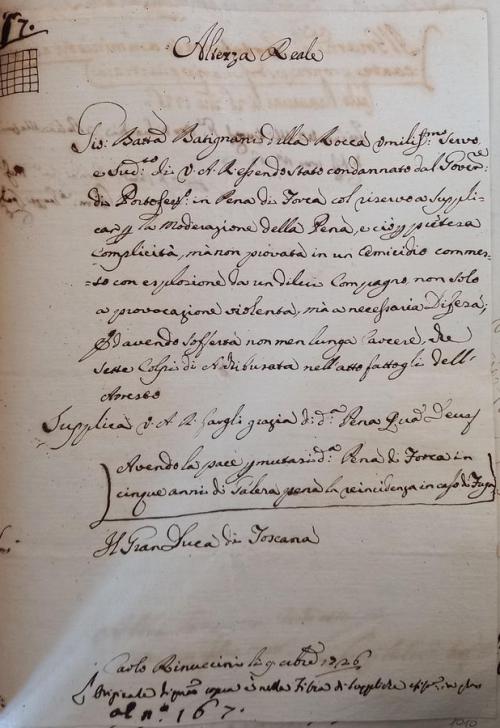 17.
Altezza Reale
Gio: Batta Batignani della Rocca umiliss.mo Servo,
e Sud.to di V. A. R. essendo stato condannato dal Gover.re
di Portoferr.o in Pena di Forca col riservo a suppli-
car p la moderazione della Pena, e ciò p pretesa
Complicità, mà non provata in un Omicidio commes-
=so con esplozione da un di lui Compagno, non solo
a provocazione violenta, mà a necessaria Difesa;
Ed avendo sofferta non men lunga Carcere, che
sette Colpi di Archibusata nell'atto fattogli dell'
Arresto
Supplica V. A. R. fargli grazia di d.a Pena Quam Deus
Avendo la pace p mutari d.a Pena di Forca in
cinque anni di Galera pena la reincidenza in caso di Fuga
Il Gran Duca di Toscana
Carlo Rinuccini 9 1726
L'Originale di questa copia è nella Filza di suppliche
al n.o 167.
1010